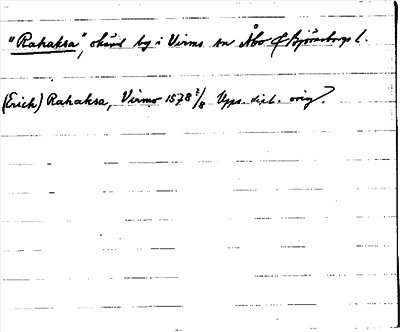 "Rahaksa", okänd by i Virmo sn Åbo & Björneborgs l.
(Erich) Rahaksa, Virmo 1578 7/8 Upps. dipl. orig.